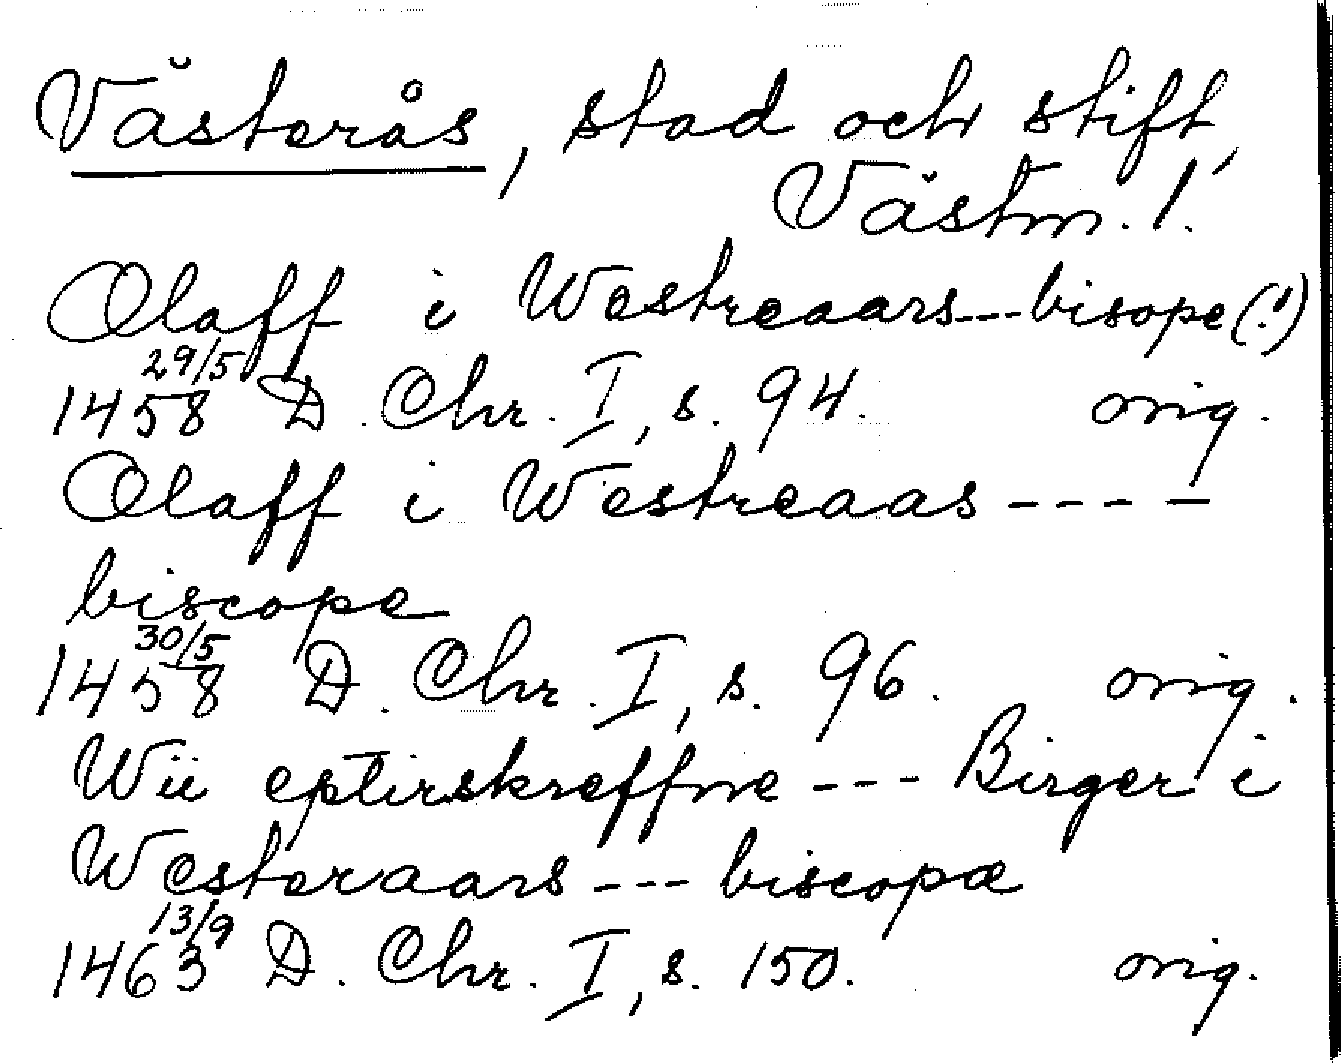 Västerås, stad och stift,
Västm. l.
Olaff i Westreaars---bisope(!)
29/5
1458 D. Chr. I, s. 94. orig.
Olaff i Westreaas ----
biscope
30/5
1458 D. Chr. I, s. 96. orig.
Wii eptirskreffne --- Birger i
Westeraars --- biscopæ
13/9
1463 D. Chr. I, s. 150. orig.